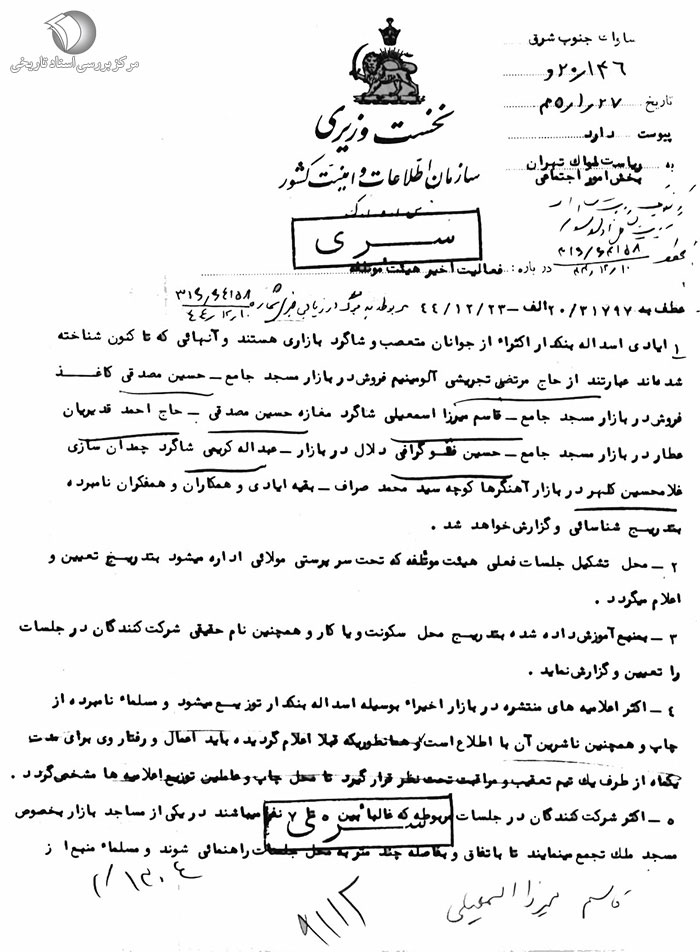 مرکز بررسی اسناد تاریخی
ساواک جنوب شرق
۲۰/۱۴۶ و
تاریخ ۲۷/۱/۴۵
پیوست دارد
نخست وزیری
سازمان اطلاعات و امنیت کشور
به ریاست ساواک تهران
بخش امور اجتماعی
سری
۳۱۶/۶۴۱۵۸
در باره : فعالیت اخیر هیئت موتلفه
عطف به ۲۰/۳۱۷۹۷الف – ۴۴/۱۲/۲۳
۱ ایادی اسداله بنکدار اکثرا" از جوانان متعصب و شاگرد بازاری هستند و آنهائی که تا کنون شناخته
شده‌اند عبارتند از حاج مرتضی تجریشی آلومینیم فروش در بازار مسجد جامع – حسین مصدقی کاغذ
فروش در بازار مسجد جامع – قاسم میرزا اسمعیلی شاگرد مغازه حسین مصدقی – حاج احمد قدیریان
عطار در بازار مسجد جامع – حسین دلال در بازار – عبداله کریمی شاگرد چمدان سازی
غلامحسین کلهر در بازار آهنگرها کوچه سید محمد صراف – بقیه ایادی و همکاران و همفکران نامبرده
بتدریج شناسائی و گزارش خواهد شد .
۲ – محل تشکیل جلسات فعلی هیئت موتلفه که تحت سرپرستی مولائی اداره میشود بتدریج تعیین و
اعلام میگردد .
۳ – بمنبع آموزش داده شده بتدریج محل سکونت و یا کار و همچنین نام حقیقی شرکت کنندگان در جلسات
را تعیین و گزارش نماید .
۴ – اکثر اعلامیه های منتشره در بازار اخیرا" بوسیله اسداله بنکدار توزیع میشود و مسلما" نامبرده از
چاپ و همچنین ناشرین آن با اطلاع است و همانطوریکه قبلا اعلام گردیده باید اعمال و رفتار وی برای مدت
یکماه از طرف یك تیم تعقیب و مراقبت تحت نظر قرار گیرد تا محل چاپ و عاملین توزیع اعلامیه ها مشخص گردد .
۵ – اکثر شرکت کنندگان در جلسات مربوطه که غالبا" بین ۵ تا ۷ نفر میباشند در یکی از مساجد بازار بخصوص
سری
مسجد ملك تجمع مینمایند تا باتفاق و بفاصله چند متر به محل جلسات راهنمائی شوند و مسلما" منبع از
قاسم میرزا اسمعیلی
۹۱۱۲